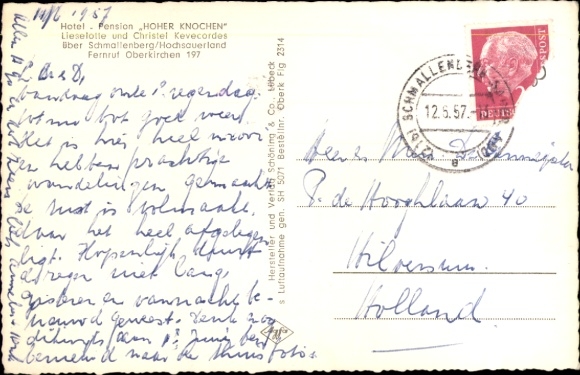 11/6 1957
Hotel - Pension „HOHER KNOCHEN"
Lieselotte und Christel Kevecordes
über Schmallenberg/Hochsauerland
Fernruf Oberkirchen 197
L. B. & D,
vandaag onze 1e regendag.
tot nu toe goed weer.
Het is hier heel mooi
en hebben prachtige
wandelingen gemaakt.
De rust is volmaakt,
daar het heel afgelegen
ligt. Hopenlijk duurt
de regen niet lang.
gisteren en vannacht be-
nauwd geweest. Denk nog
aan 1e juni
benieuwd naar de thuis foto's
Hersteller und Verlag Schöning & Co., Lübeck
s Luftaufnahme gen. SH 50/71 Bestellnr. Oberk Flg 2314
SCHMALLENBERG
12.6.57
POST
Heer en Mevr.
P. de Hooghlaan 40
Hilversum.
Holland